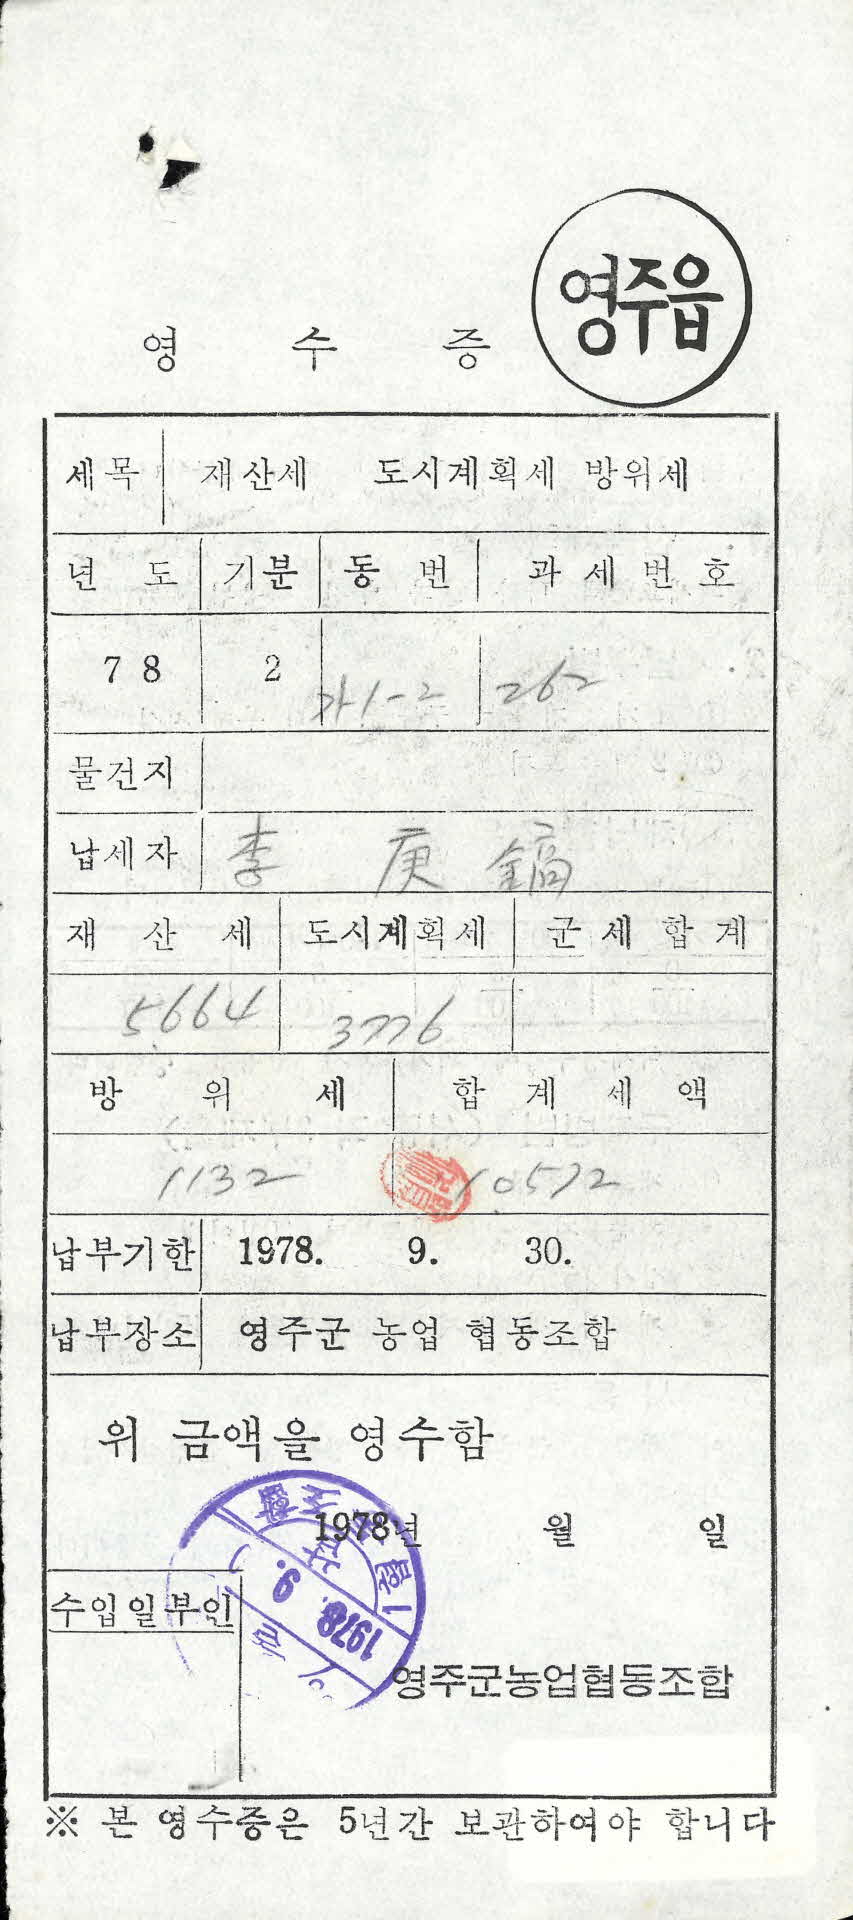 영주읍
영 수 증
세목 재산세 도시계획세 방위세
년 도 기분 동 번 과 세 번 호
7 8 2 가1-2 262
물건지
납세자 李 庚 鎬
재 산 세 도시계획세 군 세 합 계
5664 3776
방 위 세 합 계 세 액
1132 10572
납부기한 1978. 9. 30.
납부장소 영주군 농업 협동조합
위 금액을 영수함
1978년 월 일
1978. 9.
수입일부인
영주군농업협동조합
※ 본 영수증은 5년간 보관하여야 합니다